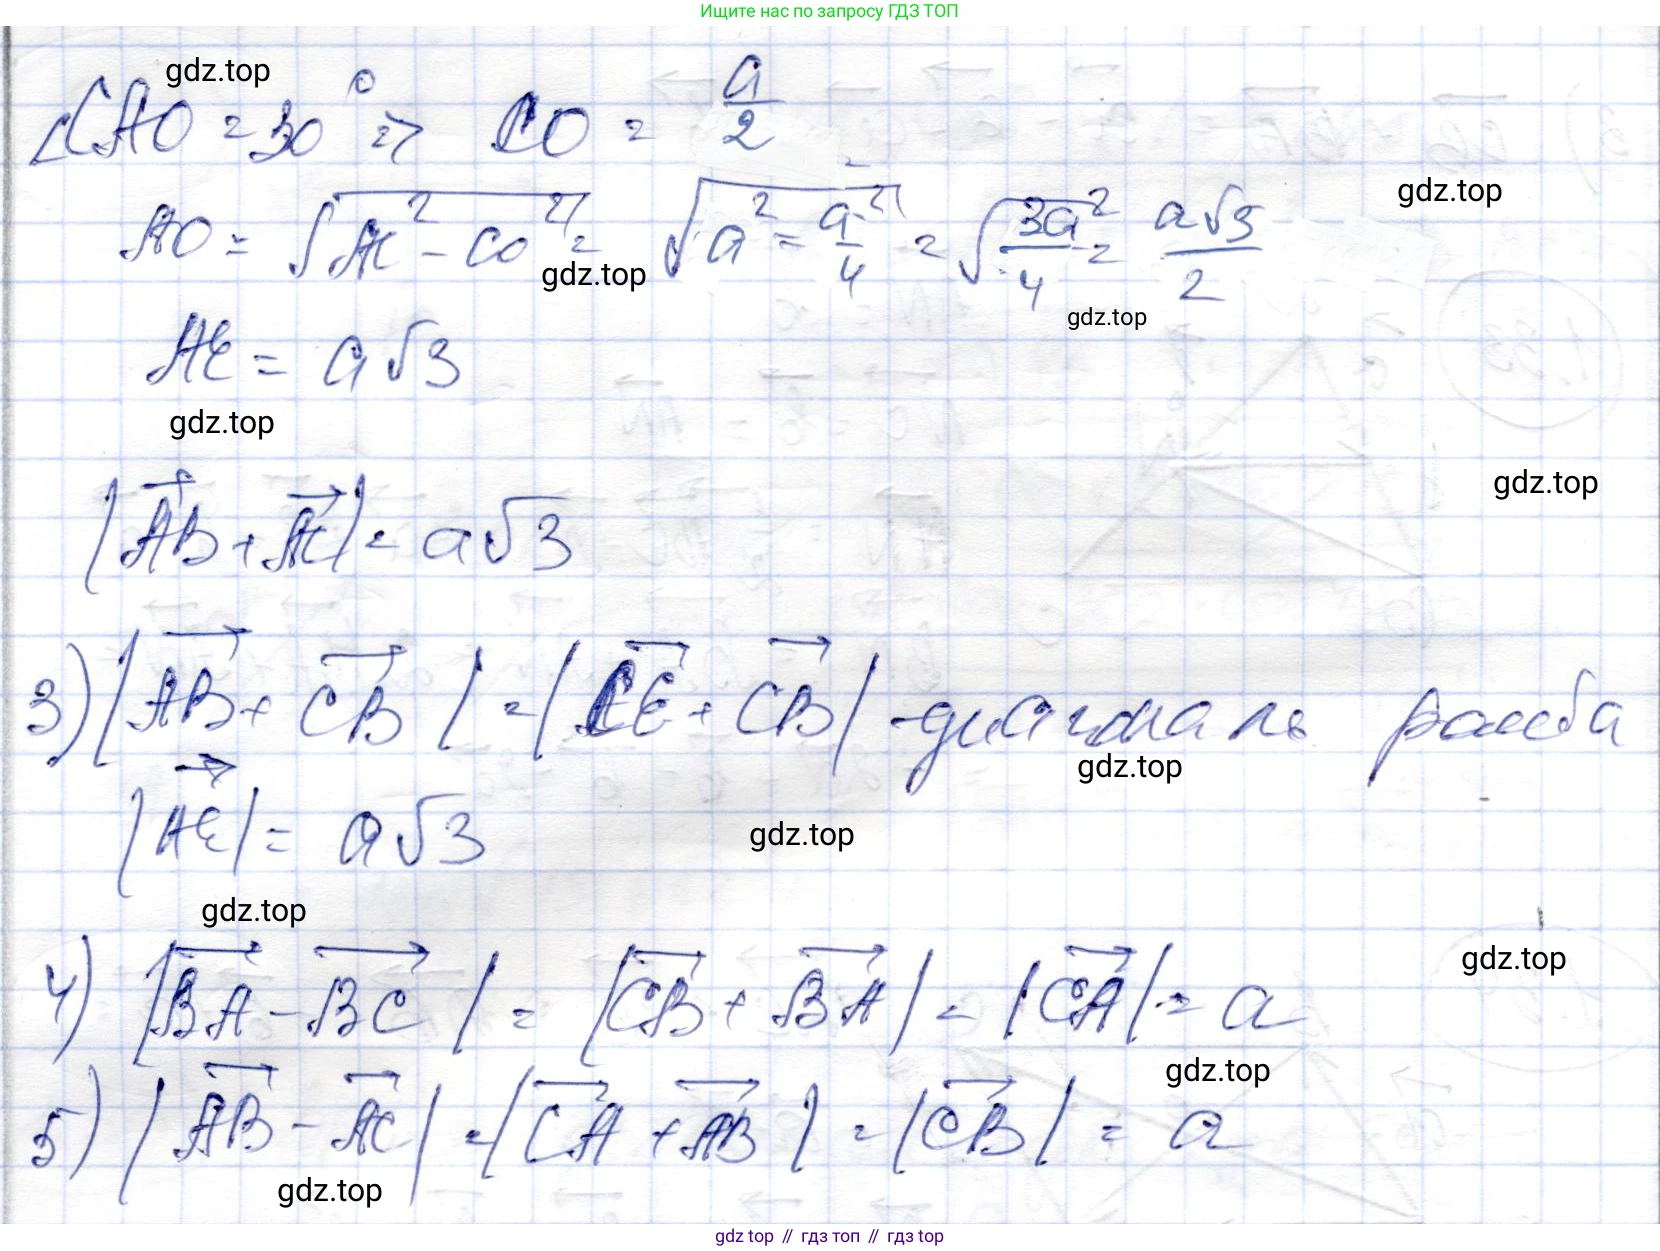 Ищите нас по запросу ГДЗ ТОП
gdz.top
∠CAO = 30° ⇒ CO = a/2
gdz.top
AO = √(AC² - CO²) = √(a² - a²/4) = √(3a²/4) = a√3/2
gdz.top
gdz.top
AE = a√3
gdz.top
gdz.top
|AB→ + AC→| = a√3
3) |AB→ + CB→| = |CE→ + CB→| - диагональ ромба
gdz.top
|AE→| = a√3
gdz.top
gdz.top
gdz.top
4) |BA→ - BC→| = |CB→ + BA→| = |CA→| = a
gdz.top
5) |AB→ - AC→| = |CA→ + AB→| = |CB→| = a
gdz.top
gdz top // гдз топ // гдз top